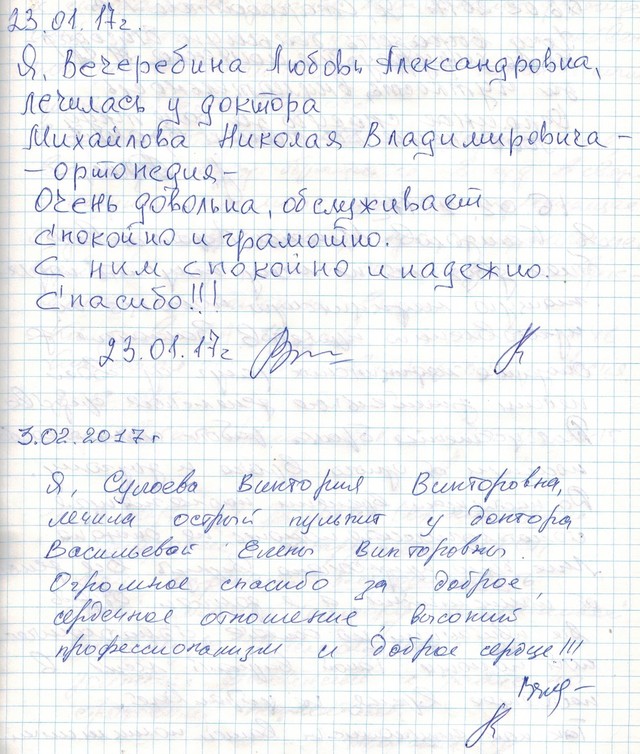 23.01.17г.
Я, Вечеребина Любовь Александровна,
лечилась у доктора
Михайлова Николая Владимировича -
- ортопедия -
Очень довольна, обслуживает
спокойно и грамотно.
С ним спокойно и надежно.
Спасибо!!!
23.01.17г
3.02.2017г
Я, Сулоева Виктория Викторовна,
лечила острый пульпит у доктора
Васильевой Елены Викторовны.
Огромное спасибо за доброе,
сердечное отношение, высокий
профессионализм и доброе сердце!!!